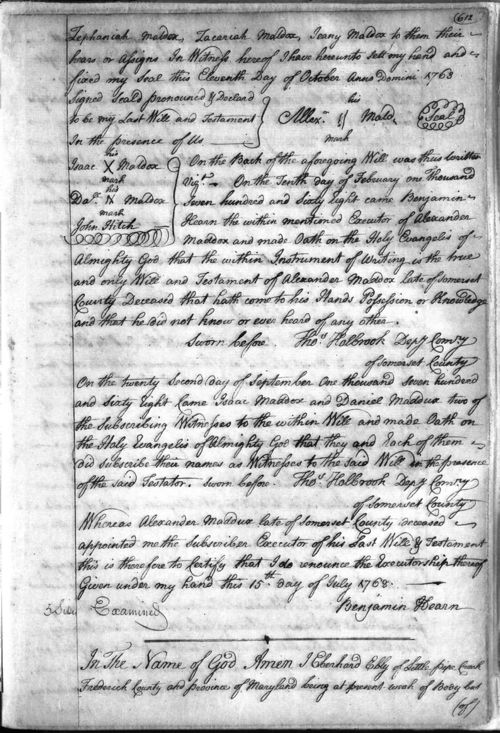 (612
Zephaniah Maddox, Zacariah Maddox, Jeany Maddox to them their
hears or Assigns In Witness hereof I have hereunto sett my hand and
fixed my Seal this Eleventh Day of October Anno Domini 1763
Signed Seal'd pronounced & Declard
to be my Last Will and Testament
In the presence of Us
his
Allexr Maddx Seal
mark
his
Isaac X Maddox
mark
his
Danl N Maddox
mark
John Hitch
On the Back of the aforegoing Will was thus written
Vizt. On the Tenth day of February one Thousand
Seven hundred and Sixty Eight came Benjamin
Hearn the within mentioned Executor of Alexander
Maddox and made Oath on the Holy Evangelis of
Almighty God that the within Instrument of Writing is the true
and only Will and Testament of Alexander Maddox late of Somerset
County Deceased that hath come to his Hands Possession or Knowledge
and that he did not know or ever heard of any other.
Sworn before Thos Holbrook Depy Comry
of Somerset County
On the twenty Second day of September one thousand Seven hundred
and Sixty Eight Came Isaac Maddox and Daniel Maddux two of
the Subscribing Witnesses to the within Will and made Oath on
the Holy Evangelis of Almighty God that they and Each of them
did subscribe their names as Witnesses to the Said Will in the presence
of the said Testator. Sworn before Thos Holbrook Depy Comry
of Somerset County
Whereas Alexander Maddux late of Somerset County deceased
appointed me the Subscriber Executor of his Last Will & Testament
this is therefore to Certify that I do renounce the Executorship thereof
Given under my hand this 15th Day of July 1768.
Benjamin Hearn
Examined
In The Name of God Amen I Eberhard Ebly of Little pipe Creek
Frederick County and province of Maryland being at present weak of Body but